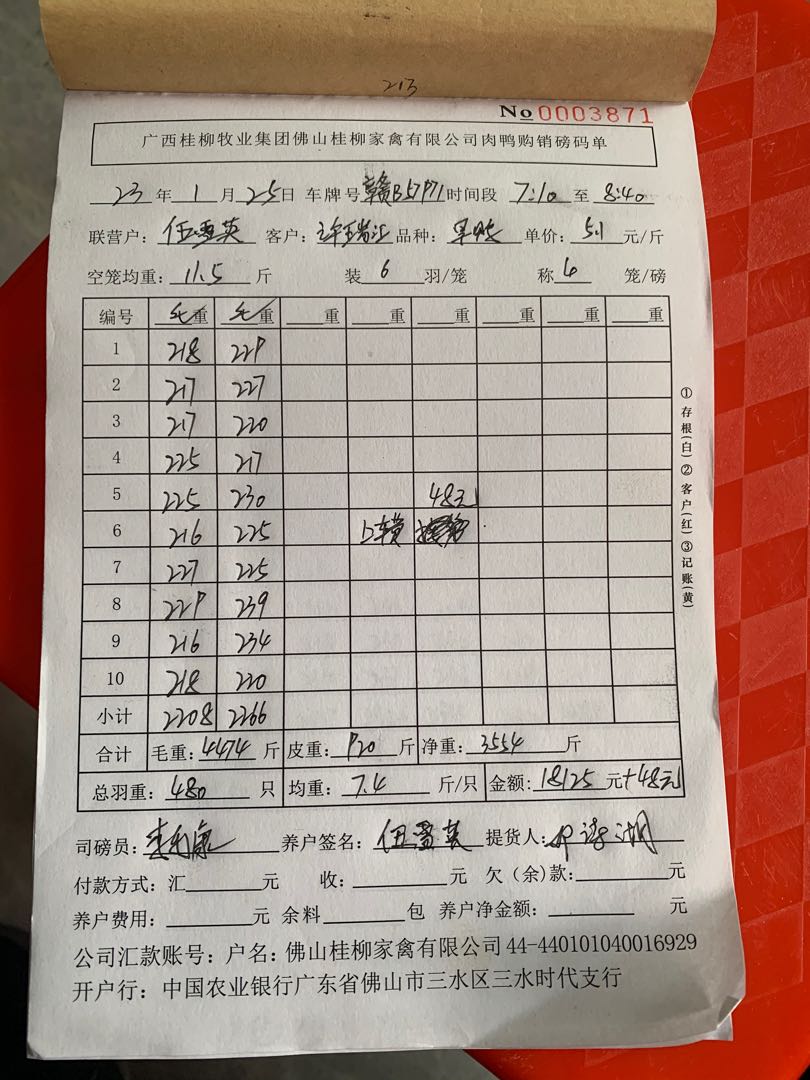 213
No 0003871
广西桂柳牧业集团佛山桂柳家禽有限公司肉鸭购销磅码单
23 年 1 月 25 日 车牌号 赣B57P71 时间段 7:10 至 8:40
联营户: 伍雪英 客户: 品种: 单价: 5.1 元/斤
空笼均重: 11.5 斤 装 6 羽/笼 称 4 笼/磅
编号 毛重 毛重 重 重 重 重 重 重
1 218 229
2 217 227
3 217 220
4 225 217
5 225 230 48元
6 216 225
7 227 225
8 229 239
9 216 234
10 218 220
小计 2208 2266
合计 毛重: 4474 斤 皮重: 920 斤 净重: 3554 斤
总羽重: 480 只 均重: 7.4 斤/只 金额: 18125 元+48元
司磅员: 养户签名: 伍雪英 提货人:
付款方式: 汇 元 收: 元 欠(余)款: 元
养户费用: 元 余料 包 养户净金额: 元
公司汇款账号: 户名: 佛山桂柳家禽有限公司 44-440101040016929
开户行: 中国农业银行广东省佛山市三水区三水时代支行
①存根(白)②客户(红)③记账(黄)